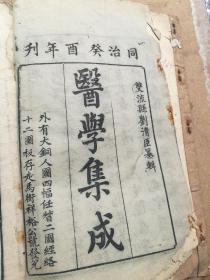 同治癸酉年刊
雙流縣劉清臣纂輯
醫學集成
外有大銅人圖四幅任督二圖經絡
十二圖板存走馬街祥裕公號發兌